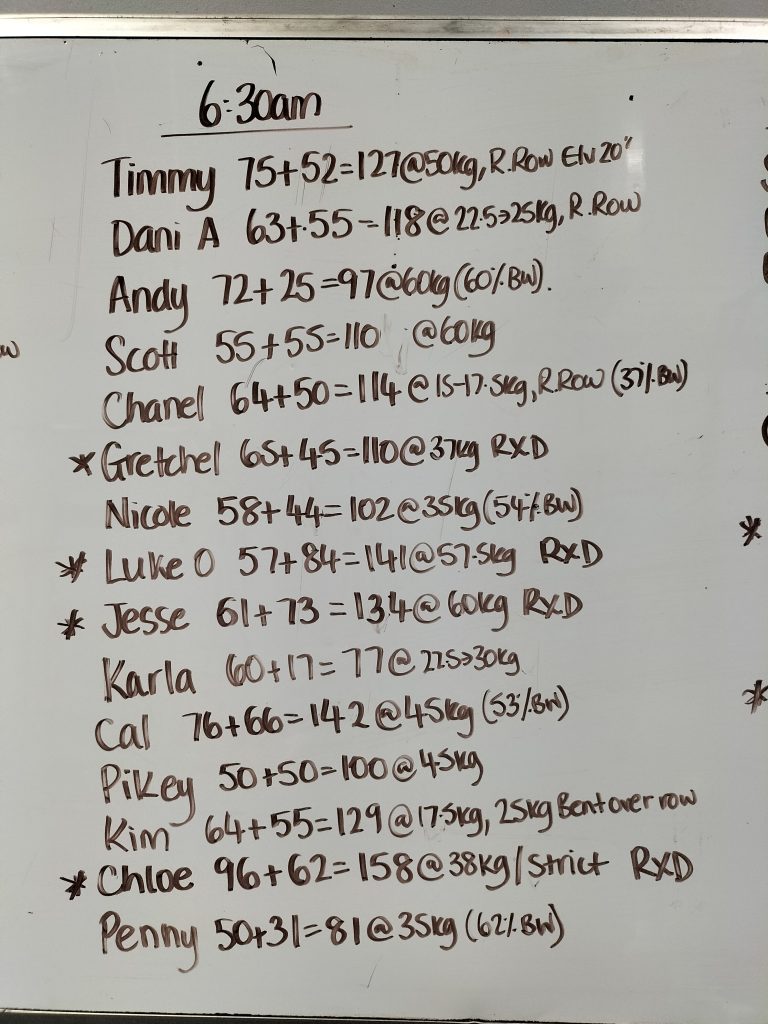 6:30am
Timmy 75+52=127@50kg, R.Row Elv 20"
Dani A 63+55=118@22.5→25kg, R.Row
Andy 72+25=97@60kg (60%BW).
Scott 55+55=110 @60kg
Chanel 64+50=114@15-17.5kg, R.Row (37%BW)
* Gretchel 65+45=110@37kg RXD
Nicole 58+44=102@35kg (54%BW)
* Luke O 57+84=141@57.5kg RXD
* Jesse 61+73=134@60kg RXD
Karla 60+17=77@22.5→30kg
Cal 76+66=142@45kg (53%BW)
Pikey 50+50=100@45kg
Kim 64+55=129@17.5kg, 25kg Bent over row
* Chloe 96+62=158@38kg/strict RXD
Penny 50+31=81@35kg (62%BW)